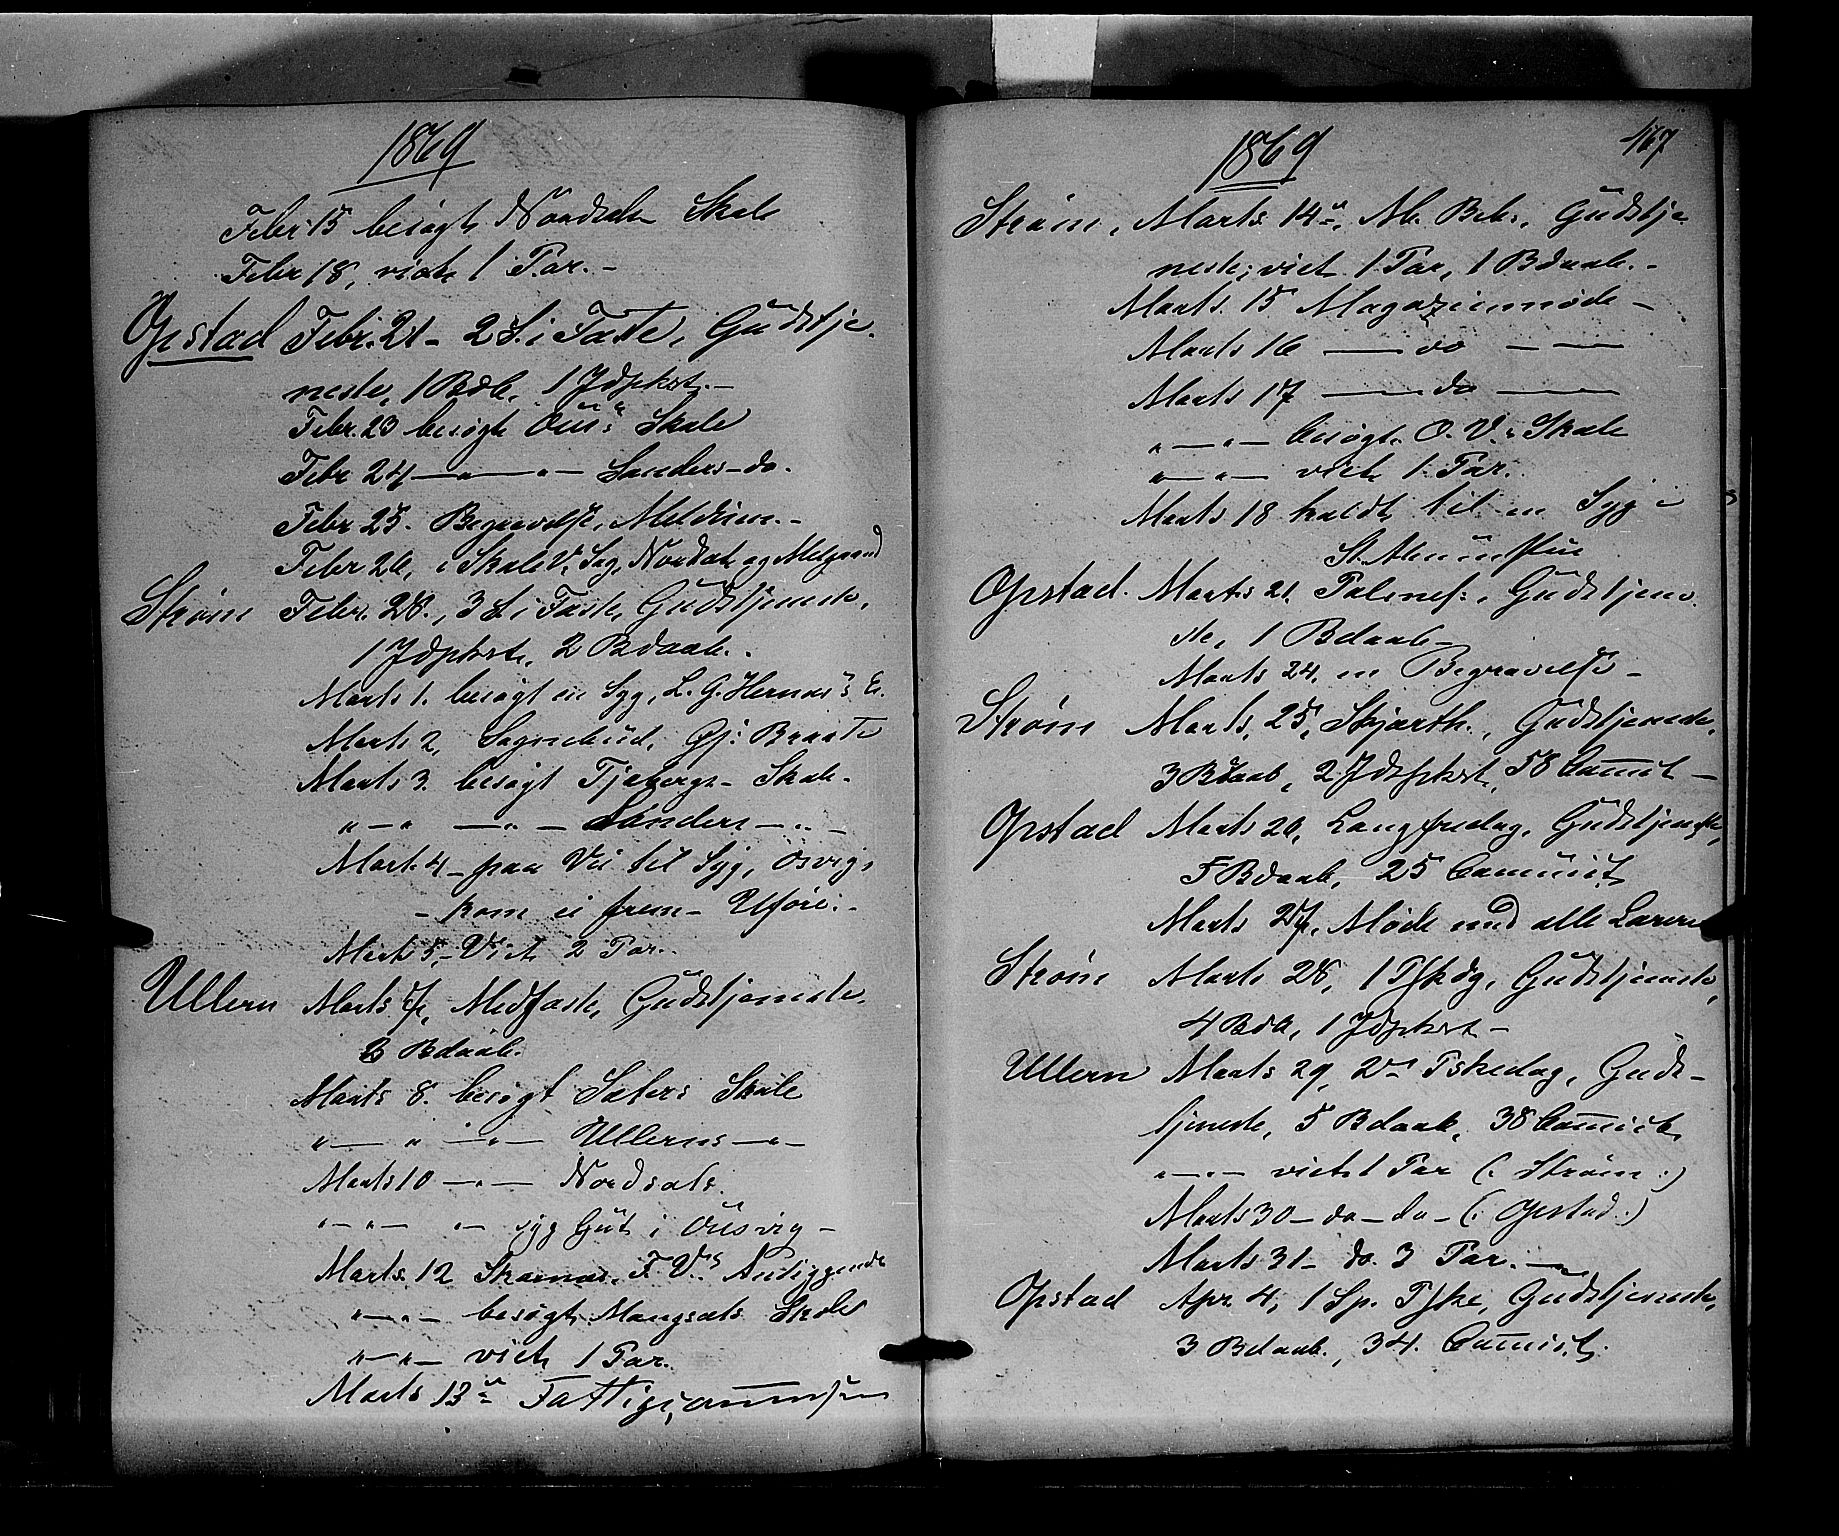 1869
Febr 15 besøgt Nordsals Skole
Febr 18, viet 1 Par. –
Opstad Febr. 21 – 2 S. i Faste, Gudstje-
neste, 1 Bdb., 1 Jdpkst. –
Febr. 23 besøgt Ous" Skole
Febr 24 — " — " — Sanders – do.
Febr 25. Begravelse, Meldrum. –
Febr 26, i Skole V. Sag, Nordsal og Melgaard
Strøm Febr. 28., 3 S. i Faste, Gudstjeneste,
1 Jdpkst, 2 Bdaab. .
Marts 1. besøgt en Syg, L. G. Hernæs's E.
Marts 2, Sognebud, Gj: Braate
Marts 3. besøgt Tjabergs – Skole.
" — " — " — Sanders — " —
Mart. 4 – paa Vei til Syg, Osvig,
– kom ei frem – Uføre: –
Marts 5, – Viet 2 Par.
Ullern Marts 7, Midfaste, Gudstjeneste,
3 Bdaab.
Marts 8. besøgt Sæters Skole
" — " — " — Ullerns — " —
Marts 10 — " — Nordsals.
" — " — " — syg Gut i Ousvig –
Marts 12 Skarnæs, F. V.s Anliggende
" — " — besøgt Mangsals Skole
" — " — viet 1 Par.
Marts 13de Fattigcommission
1869
467
Strøm, Marts 14de, M. Beb., Gudstje-
neste; viet 1 Par, 1 Bdaab. –
Marts. 15 Magazinmøde –
Marts 16 — do — —
Marts 17 — do —
" — " — besøgt O. V.s Skole
" — " — viet 1 Par.
Marts 18 kaldt til en Syg i
Opstad. Marts 21, Palmes:, Gudstjene-
ste, 1 Bdaab –
Marts 24, en Begravelse –
Strøm Marts, 25, Skjærth., Gudstjeneste,
3 Bdaab, 2 Jdpkst, 58 Communic –
Opstad Marts 26, Langfredag, Gudstjeneste,
5 Bdaab, 25 Communic.
Marts 27, Møde med alle Lærere
Strøm Marts 28, 1 Pskdg, Gudstjeneste,
4 Bdb, 1 Jdpkst –
Ullern Marts 29, 2den Pskedag, Guds-
tjeneste, 5 Bdaab, 38 Communic.
" — " — viet 1 Par (: Strøm :)
Marts 30 – do – do – (: Opstad :)
Marts 31 – do. 3 Par. —
Opstad Apr. 4, 1 Sp. Pske, Gudstjeneste,
3 Bdaab., 34. Communic.